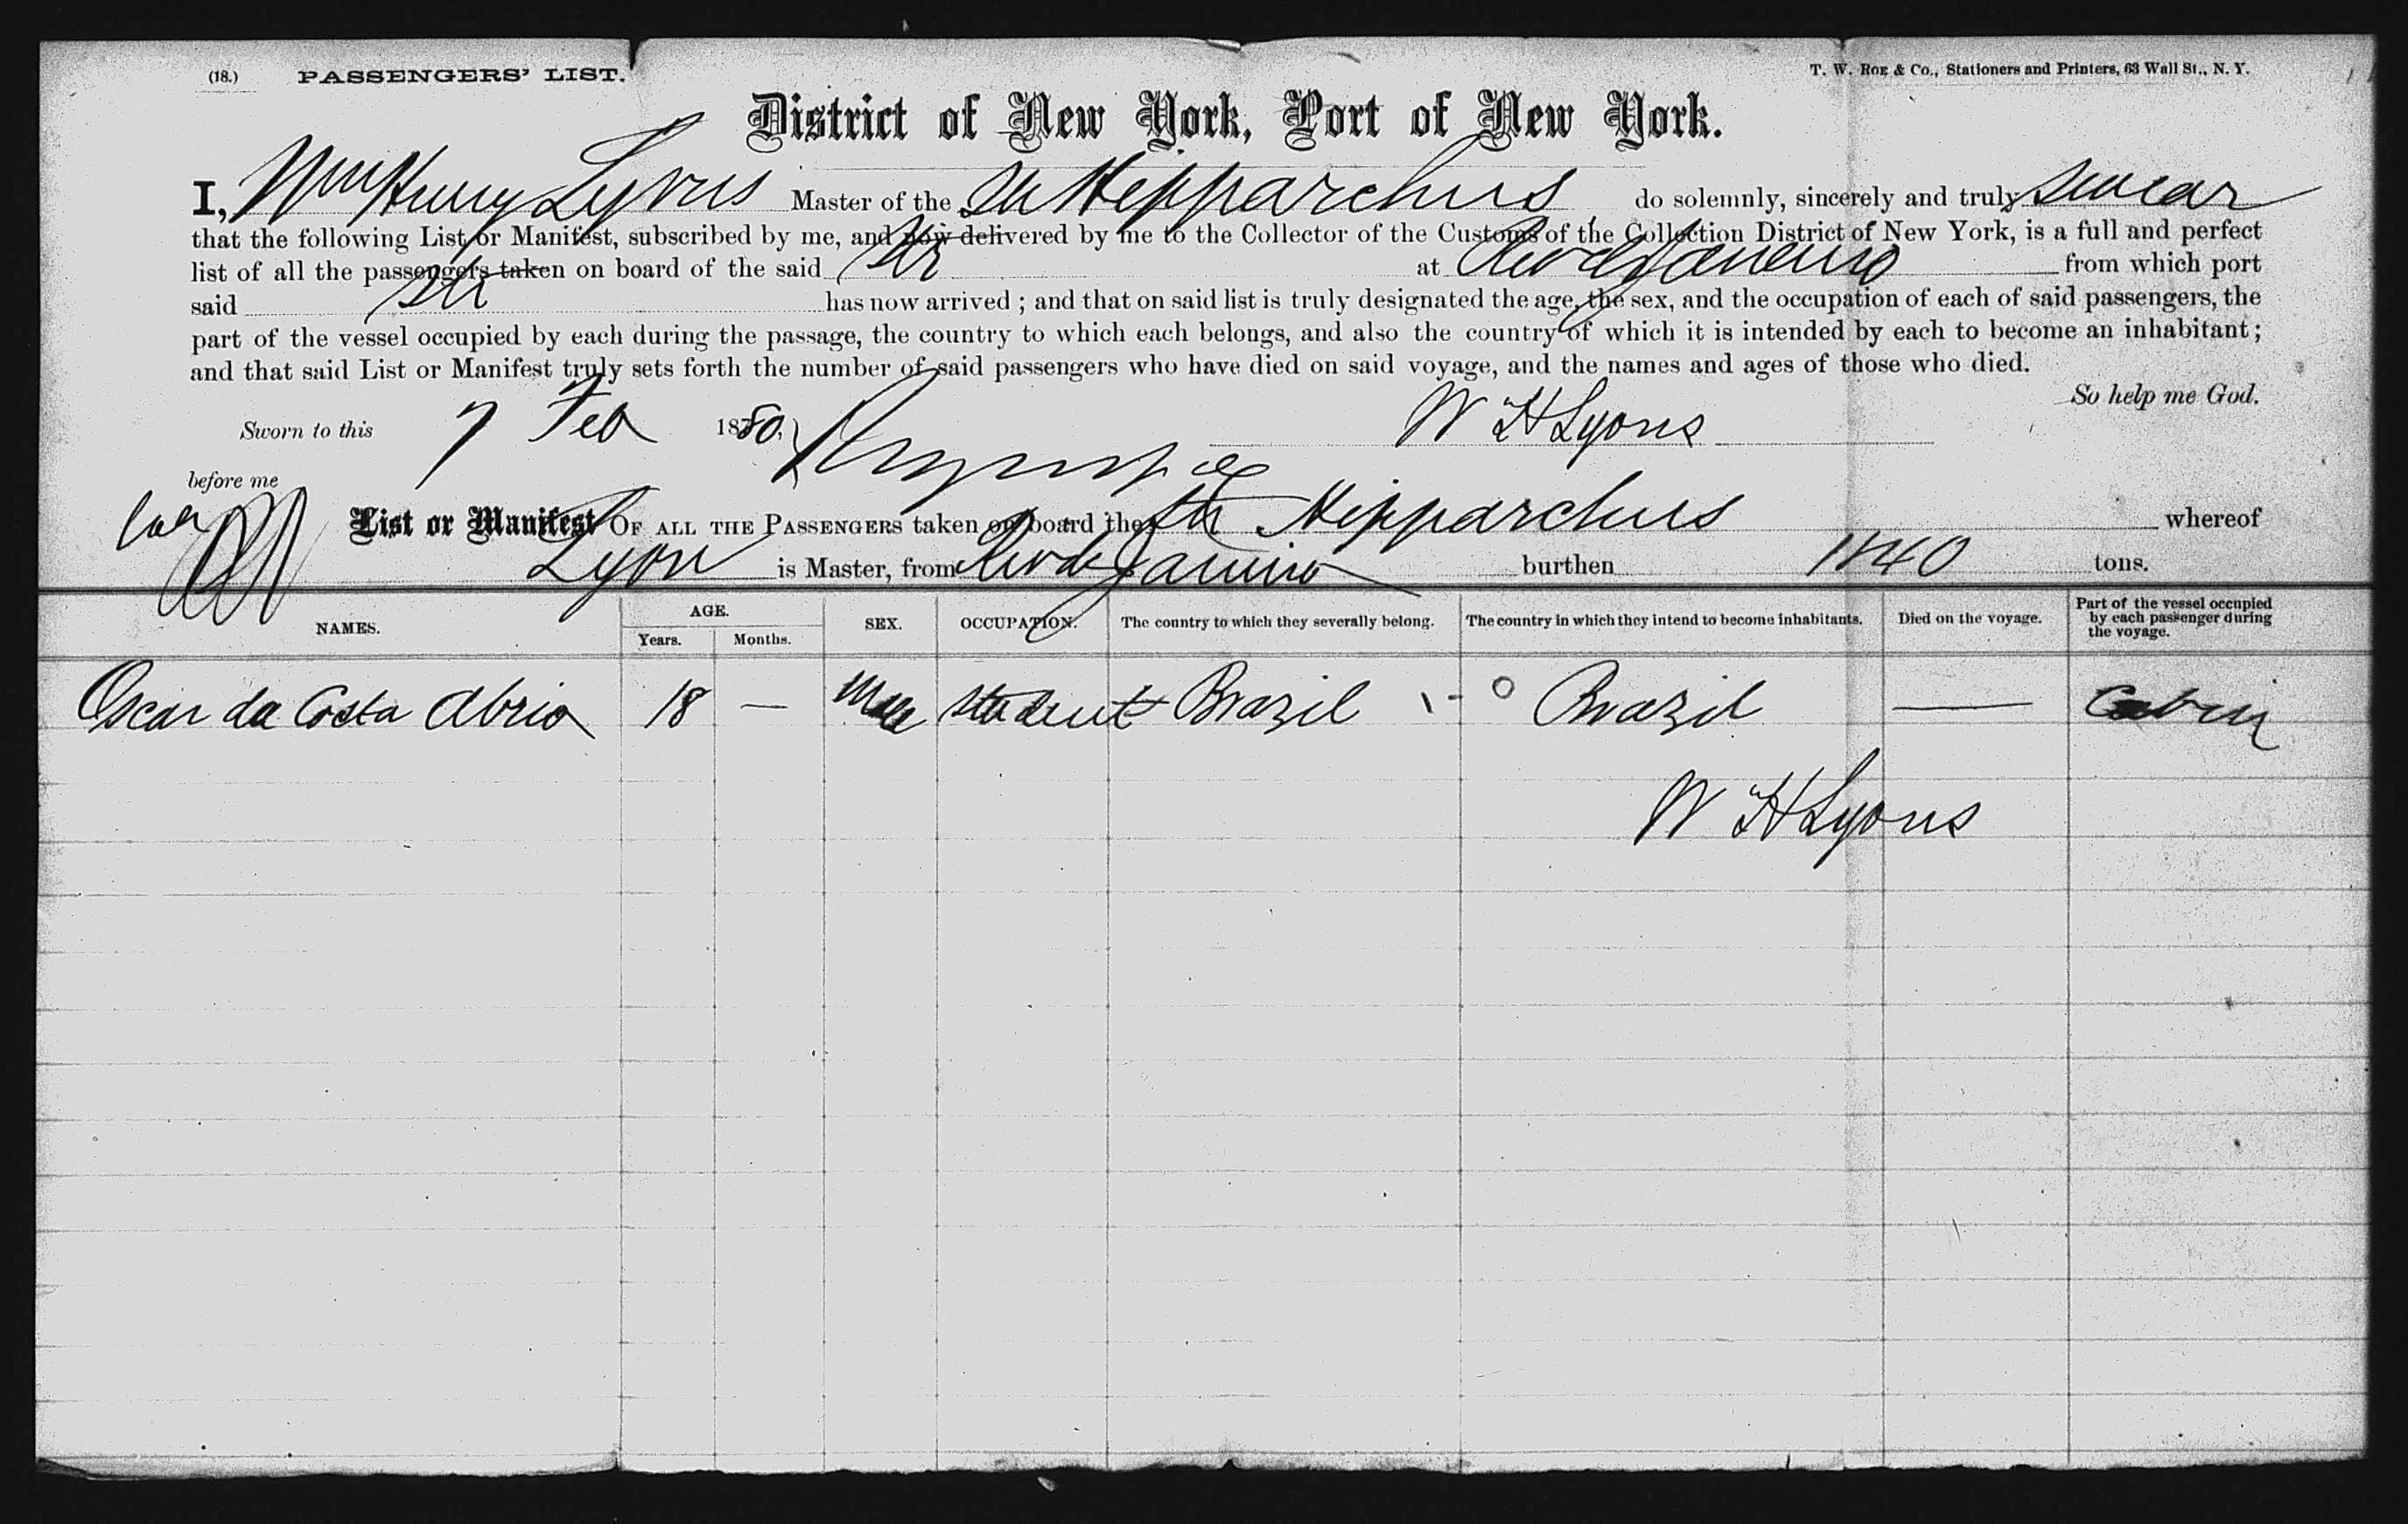 (18.) PASSENGERS' LIST. T. W. Roe & Co., Stationers and Printers, 63 Wall St., N. Y.
District of New York, Port of New York.
I, Wm Henry Lyons Master of the Str Hipparchus do solemnly, sincerely and truly swear
that the following List or Manifest, subscribed by me, and now delivered by me to the Collector of the Customs of the Collection District of New York, is a full and perfect
list of all the passengers taken on board of the said Str at Rio de Janeiro from which port
said Str has now arrived; and that on said list is truly designated the age, the sex, and the occupation of each of said passengers, the
part of the vessel occupied by each during the passage, the country to which each belongs, and also the country of which it is intended by each to become an inhabitant;
and that said List or Manifest truly sets forth the number of said passengers who have died on said voyage, and the names and ages of those who died.
So help me God.
Sworn to this 7 Feb 1880, W H Lyons
before me
List or Manifest OF ALL THE PASSENGERS taken on board the Str Hipparchus whereof
Lyon is Master, from Rio de Janeiro burthen 1840 tons.
NAMES. AGE. Years. Months. SEX. OCCUPATION. The country to which they severally belong. The country in which they intend to become inhabitants. Died on the voyage. Part of the vessel occupied by each passenger during the voyage.
Oscar da Costa Abrio 18 — Male Student Brazil Brazil — Cabin
W H Lyons